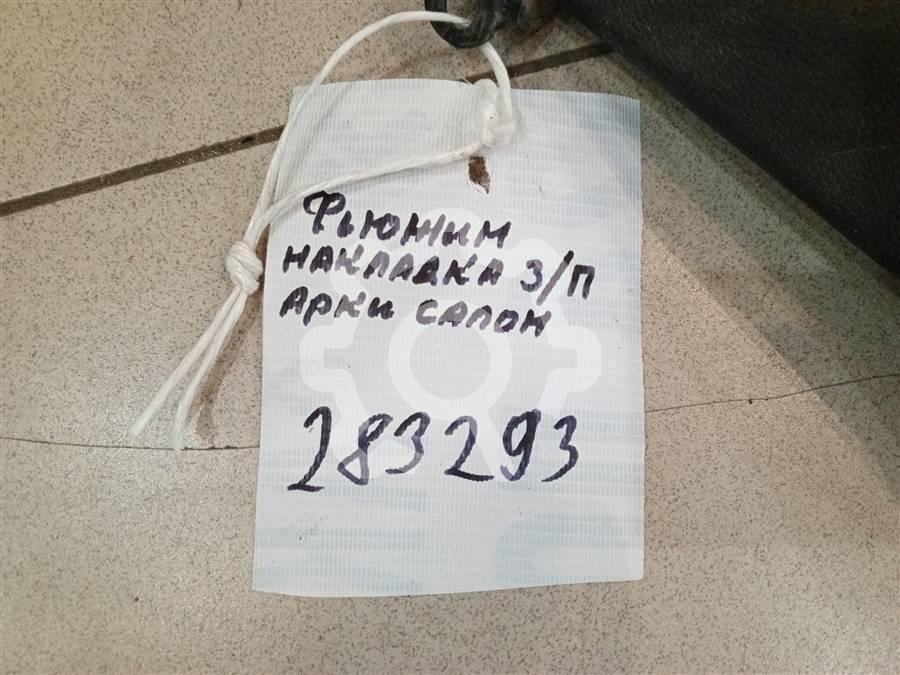 Фьюжин
накладка з/п
арки салон
283293